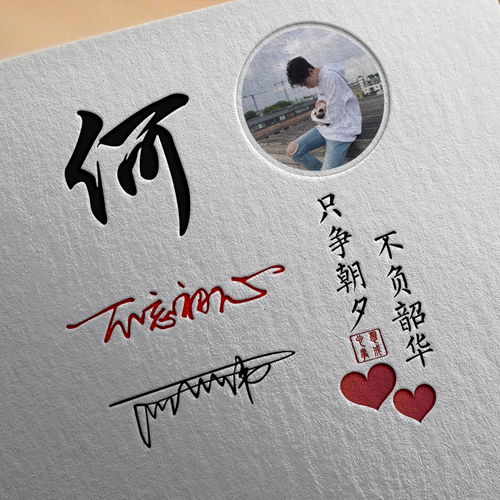 何
不忘初心
只争朝夕
不负韶华